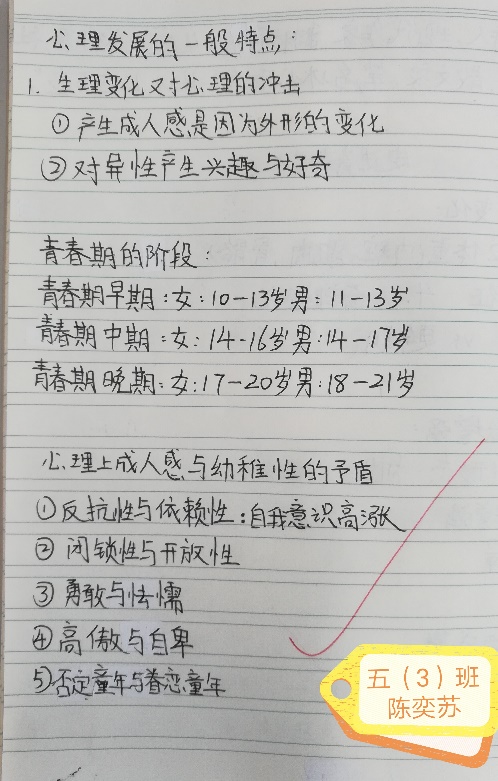 心理发展的一般特点:
1. 生理变化对心理的冲击
①产生成人感是因为外形的变化
②对异性产生兴趣与好奇
青春期的阶段:
青春期早期:女:10-13岁男:11-13岁
青春期中期:女:14-16岁男:14-17岁
青春期晚期:女:17-20岁男:18-21岁
心理上成人感与幼稚性的矛盾
①反抗性与依赖性:自我意识高涨
②闭锁性与开放性
③勇敢与怯懦
④高傲与自卑
⑤否定童年与眷恋童年
五(3)班
陈奕苏